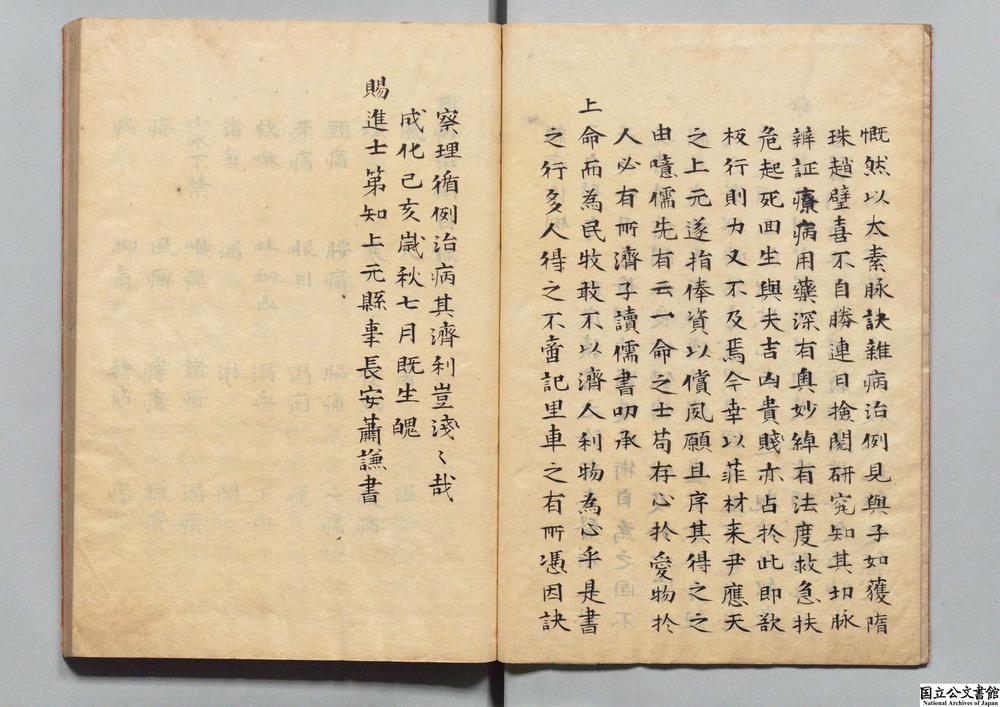 慨然以太素脉訣雜病治例見與子如獲隋
珠趙璧喜不自勝連日撿閱研究知其切脉
辨証療病用藥深有奥妙綽有法度救急扶
危起死回生與夫吉凶貴賤亦占於此即欲
板行則力又不及焉今幸以菲材来尹應天
之上元遂指俸資以償夙願且序其得之之
由噫儒先有云一命之士苟存心於愛物於
人必有所濟子讀儒書叨承
上命而為民牧敢不以濟人利物為心乎是書
之行多人得之不啻記里車之有所憑因訣
察理循例治病其濟利豈淺〻哉
成化己亥歲秋七月既生魄
賜進士第知上元縣事長安蕭謙書
国立公文書館
National Archives of Japan